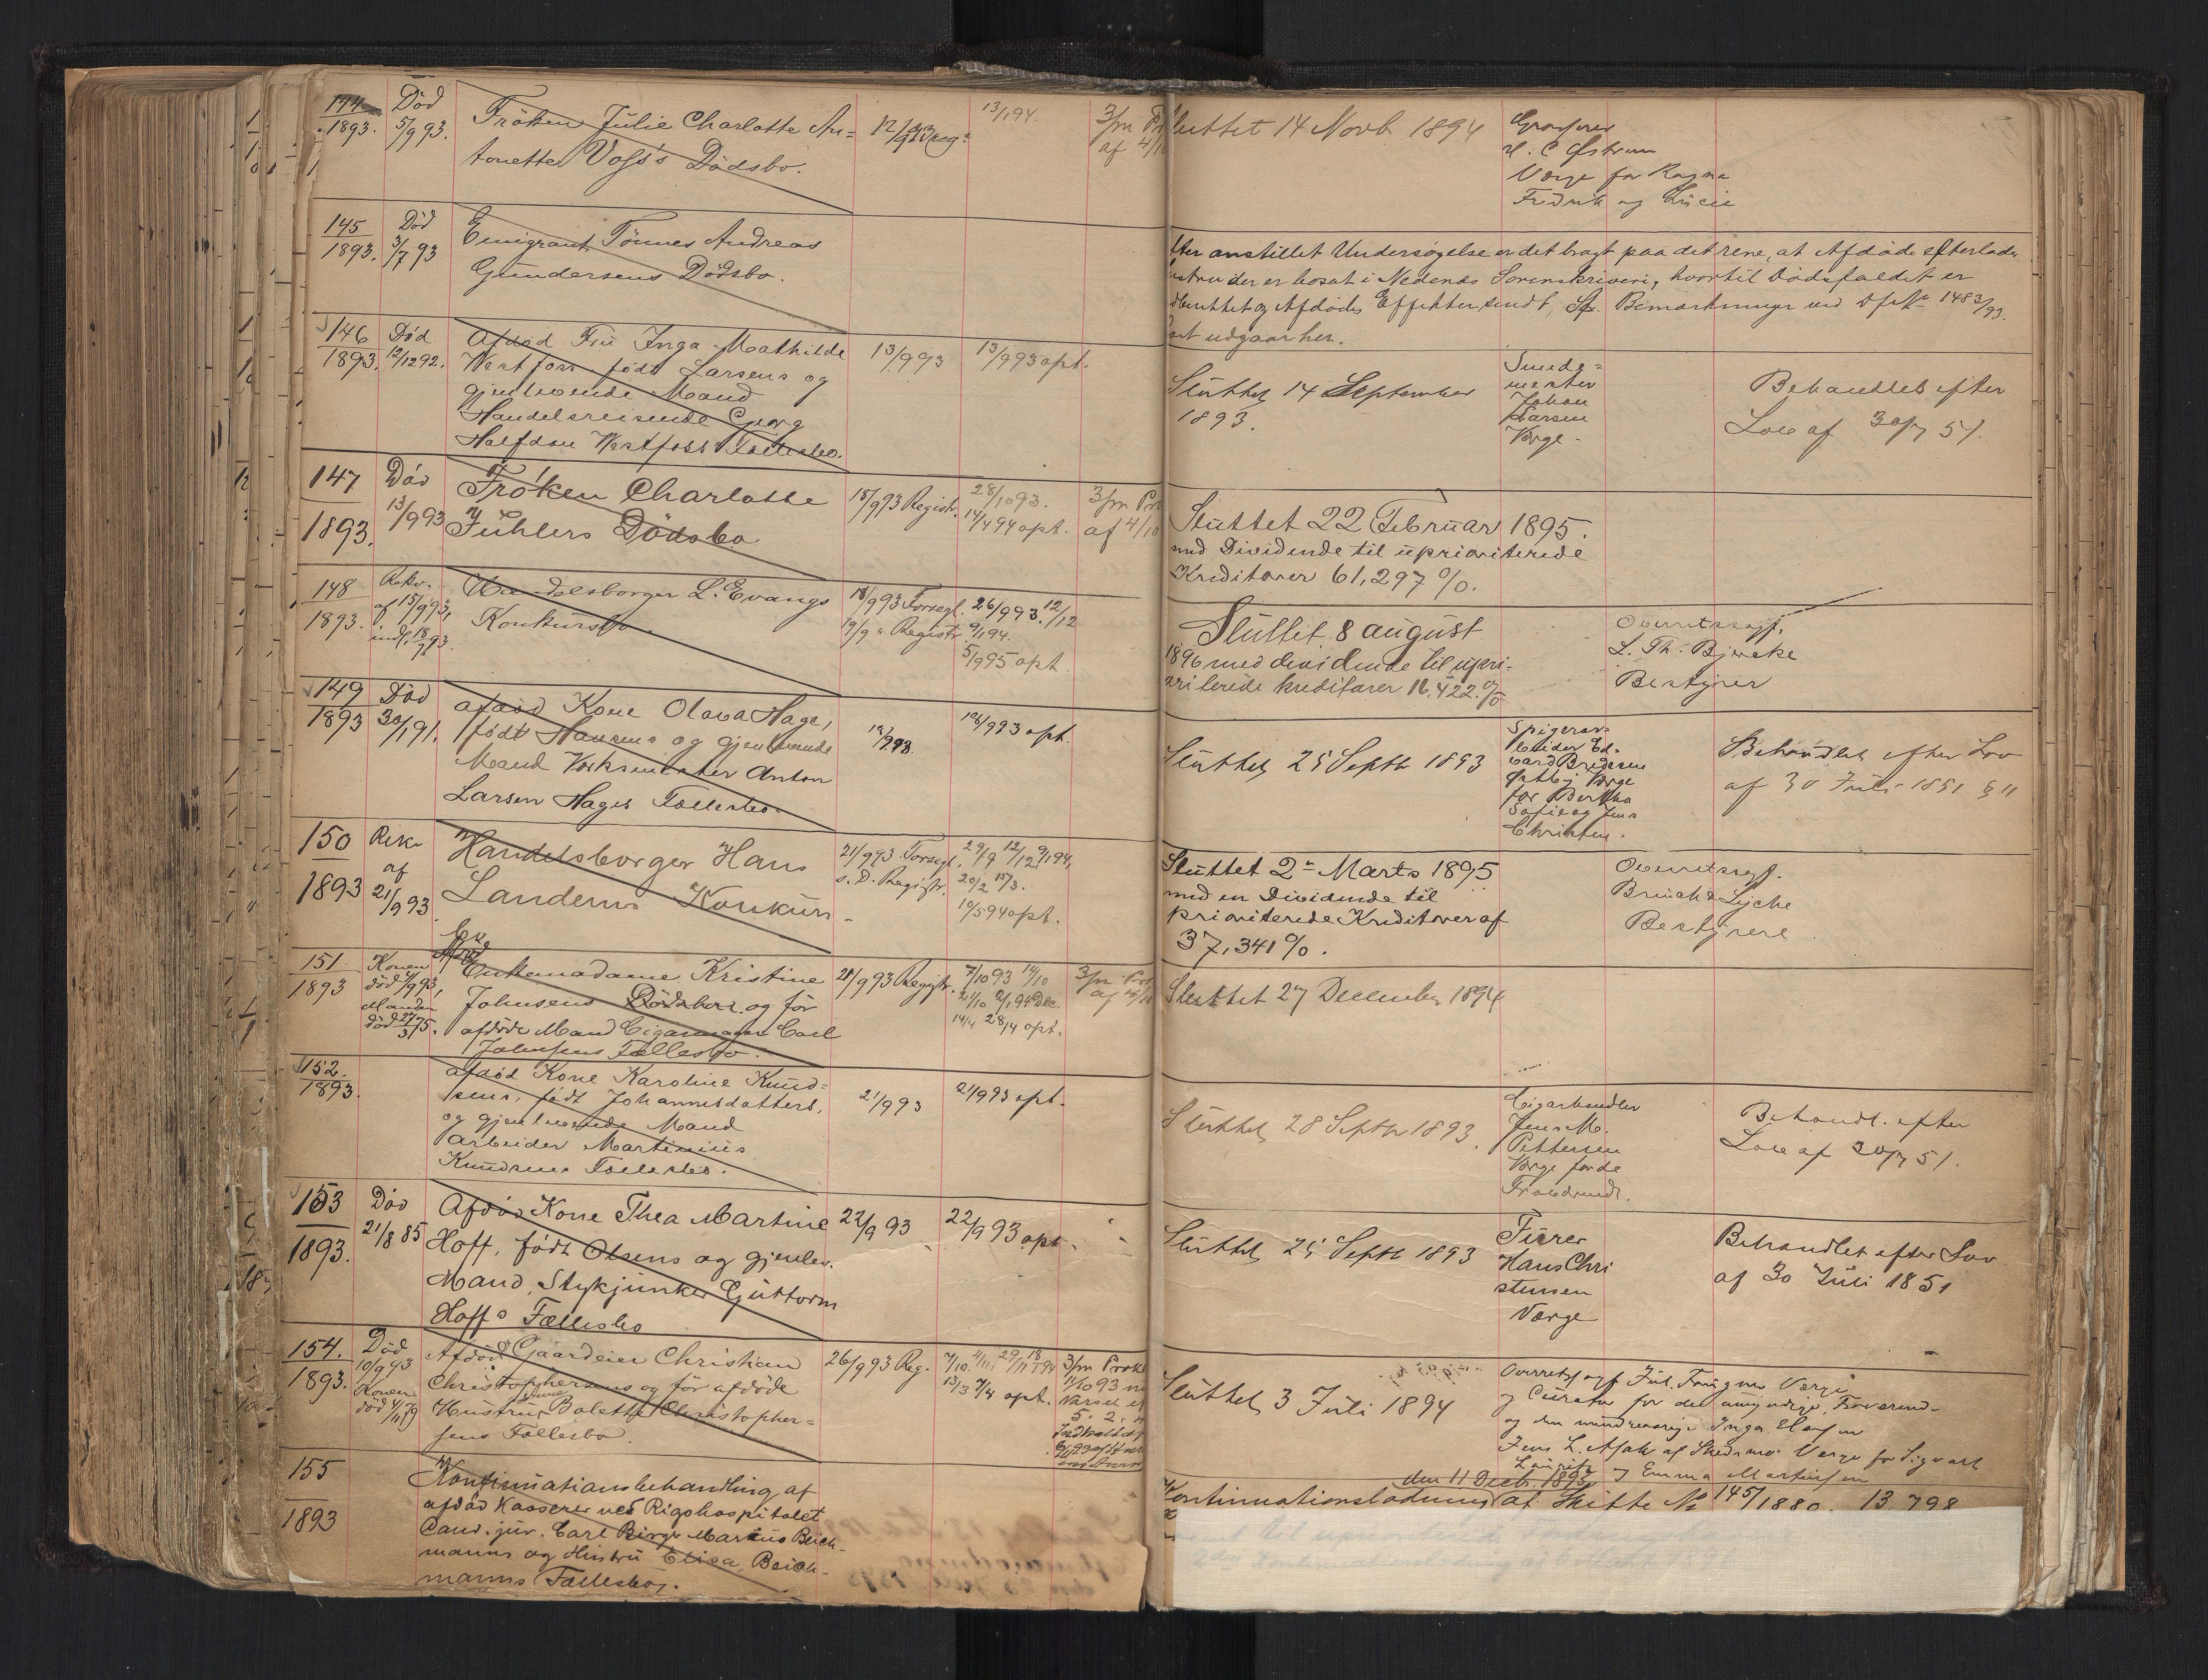 144
1893.
Död
5/9 93.
Fröken Julie Charlotte An=
tonette Voss's Dödsbo.
12/9 93 Reg.
13/1 94
3/m Pr
af 4/10
Sluttet 14 Novb 1894
Grosserer
H. C Østrem
Værge for Ragna
Fredrik og Lucie
145
1893.
Död
3/7 93
Emigrant Tönnes Andreas
Gundersens Dödsbo.
fter anstillet Undersøgelse er det bragt paa det rene, at Afdöde efterlader
ustru der er bosat i Nedenæs Sorenskriveri, hvortil Dödsfaldet er
Afdödes Effekter sendt, Bemærkninger ved 1483/93.
ut udgaar her.
146
1893.
Död
12/12 92.
Afdöd Fru Inga Mathilde
Vestfoss födt Larsens og
gjenlevende Mand
Handelsreisende Georg
Halfdan Vestfoss' Fællesbo.
13/9 93
13/9 93 opt.
Sluttet 14 September
1893.
Smede=
mester
Johan
Larsen
Værge.
Behandlet efter
Lov af 30/7 51.
147
1893.
Död
13/9 93
Fröken Charlotte
Fühlers Dödsbo
18/9 93 Registr.
28/10 93.
14/4 94 opt.
3/m Pro
af 4/10
Sluttet 22 Februar 1895.
med Dividende til uprioriterede
Kreditorer 61,297 %.
148
1893.
Rekv.
af 15/9 93,
indk. 18/9 93.
Handelsborger L. Evangs
Konkursbo
18/9 93 Forsegl.
19/9 " Registr.
26/9 93. 12/12
9/1 94.
5/9 95 opt
Sluttet 8 august
1896 med dividende til upri-
oriterede kreditorer 16,422 %
Overretssagf.
L. Th. Bjercke
Bestyrer
149
1893
Död
30/1 91.
Afdöd Kone Olava Hage,
födt Hansens og gjenlevende
Mand Værksmester Anton
Larsen Hages Fællesbo.
18/9 93.
18/9 93 opt.
Sluttet 25 Septb 1893
Spigerar-
beider Ed-
vard Bredesen
Østby Værge
for Bertha
Sofie og Jens
Christen.
Behandlet efter Lov
af 30 Juli 1851 § 11
150
1893
Rekv
af
21/9 93
Handelsborger Hans
Landems Konkurs-
21/9 93 Forsegl.
s. D. Registr.
29/9 12/12 9/1 94,
20/2 15/3.
10/5 94 opt.
Sluttet 2n Marts 1895
med en Dividende til
prioriterede Kreditorer af
37,341 %.
Overretssagf.
Bruch & Lyche
Bestyrere
151
1893
Konen
död 4/9 93,
Manden
död 27/3 75.
Enkemadame Kristine
Johnsens Dödsbo og för
afdöde Mand Cigarmager Carl
Johnsens Fællesbo.
21/9 93 Registr.
7/10 93 14/10
21/10 2/1 94 Dec.
14/4 28/4 opt.
3/m Pro
af 4/10
Sluttet 27 December 1894
152.
1893.
Afdöd Kone Karoline Knud=
sens, födt Johannesdatters,
og gjenlevende Mand
Arbeider Martinius
Knudsens Fællesbo.
21/9 93
21/9 93 opt.
Sluttet 28 Septb 1893.
Cigarhandler
Jens M.
Pettersen
Værge for de
Fraværende.
Behandl. efter
Lov af 30/7 51.
153
1893.
Död
21/8 85
Afdöd Kone Thea Martine
Hoff, födt Olsens og gjenlev.
Mand, Stykjunker Guttorm
Hoff's Fællesbo
22/9 93
22/9 93 opt.
Sluttet 25 Septb 1893
Furer
Hans Chri
stensen
Værge
Behandlet efter Lov
af 30 Juli 1851
154.
1893.
Död
10/9 93
Konen
död 4/11 79
Afdöd Gaardeier Christian
Christophersens og för afdöde
Hustru Anne Bolette Christopher=
sens Fællesbo.
26/9 93 Reg.
7/10 4/11 29/11 18/1 94
13/3 7/4 opt.
3/m Prokl
11/10 93 m
Varsel
Sluttet 3 Juli 1894
Overretssagf Jul. Værge
og Curator for den umyndige, Fraværende
og den mindreaarige Inga
Jens L. af Skedsmo Værge for Sigvart
Lauritz og Emma
155
1893
Kontinuationsbehandling af
afdöd Kasserer ved Rigshospitalet
Cand. jur. Carl Birger Marius Beich-
manns og Hustru Elisa Beich-
manns Fællesbo.
den 11 Decb. 1893
Kontinuationsladning af Skifte No 145/1880. 13 798